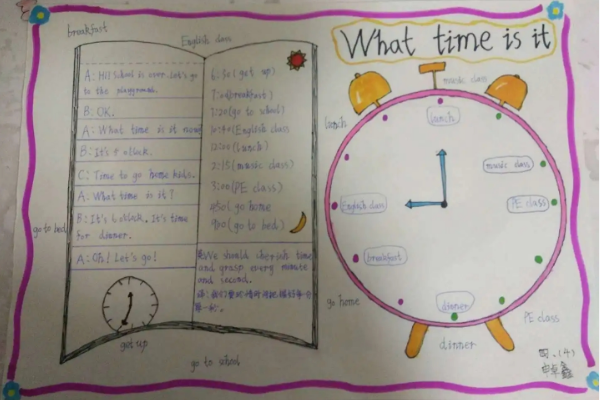 What time is it
breakfast
English class
A: Hi! School is over. Let's go
to the playground.
B: OK.
A: What time is it now
B: It's o'clock.
C: Time to go home kids.
A: What time is it?
B: It's 6 o'clock. It's time
for dinner.
A: Oh! Let's go!
6:30 (get up)
(breakfast)
7:20 (go to school)
(English class
12:00 (lunch)
2:15 (music class)
3:00 (PE class)
(go home
9:00 (go to bed)
We should cherish time
and grasp every minute
and second.
go to bed
get up
go to school
music class
lunch
lunch
music class
PE class
English class
breakfast
dinner
go home
dinner
PE class
四.(4)